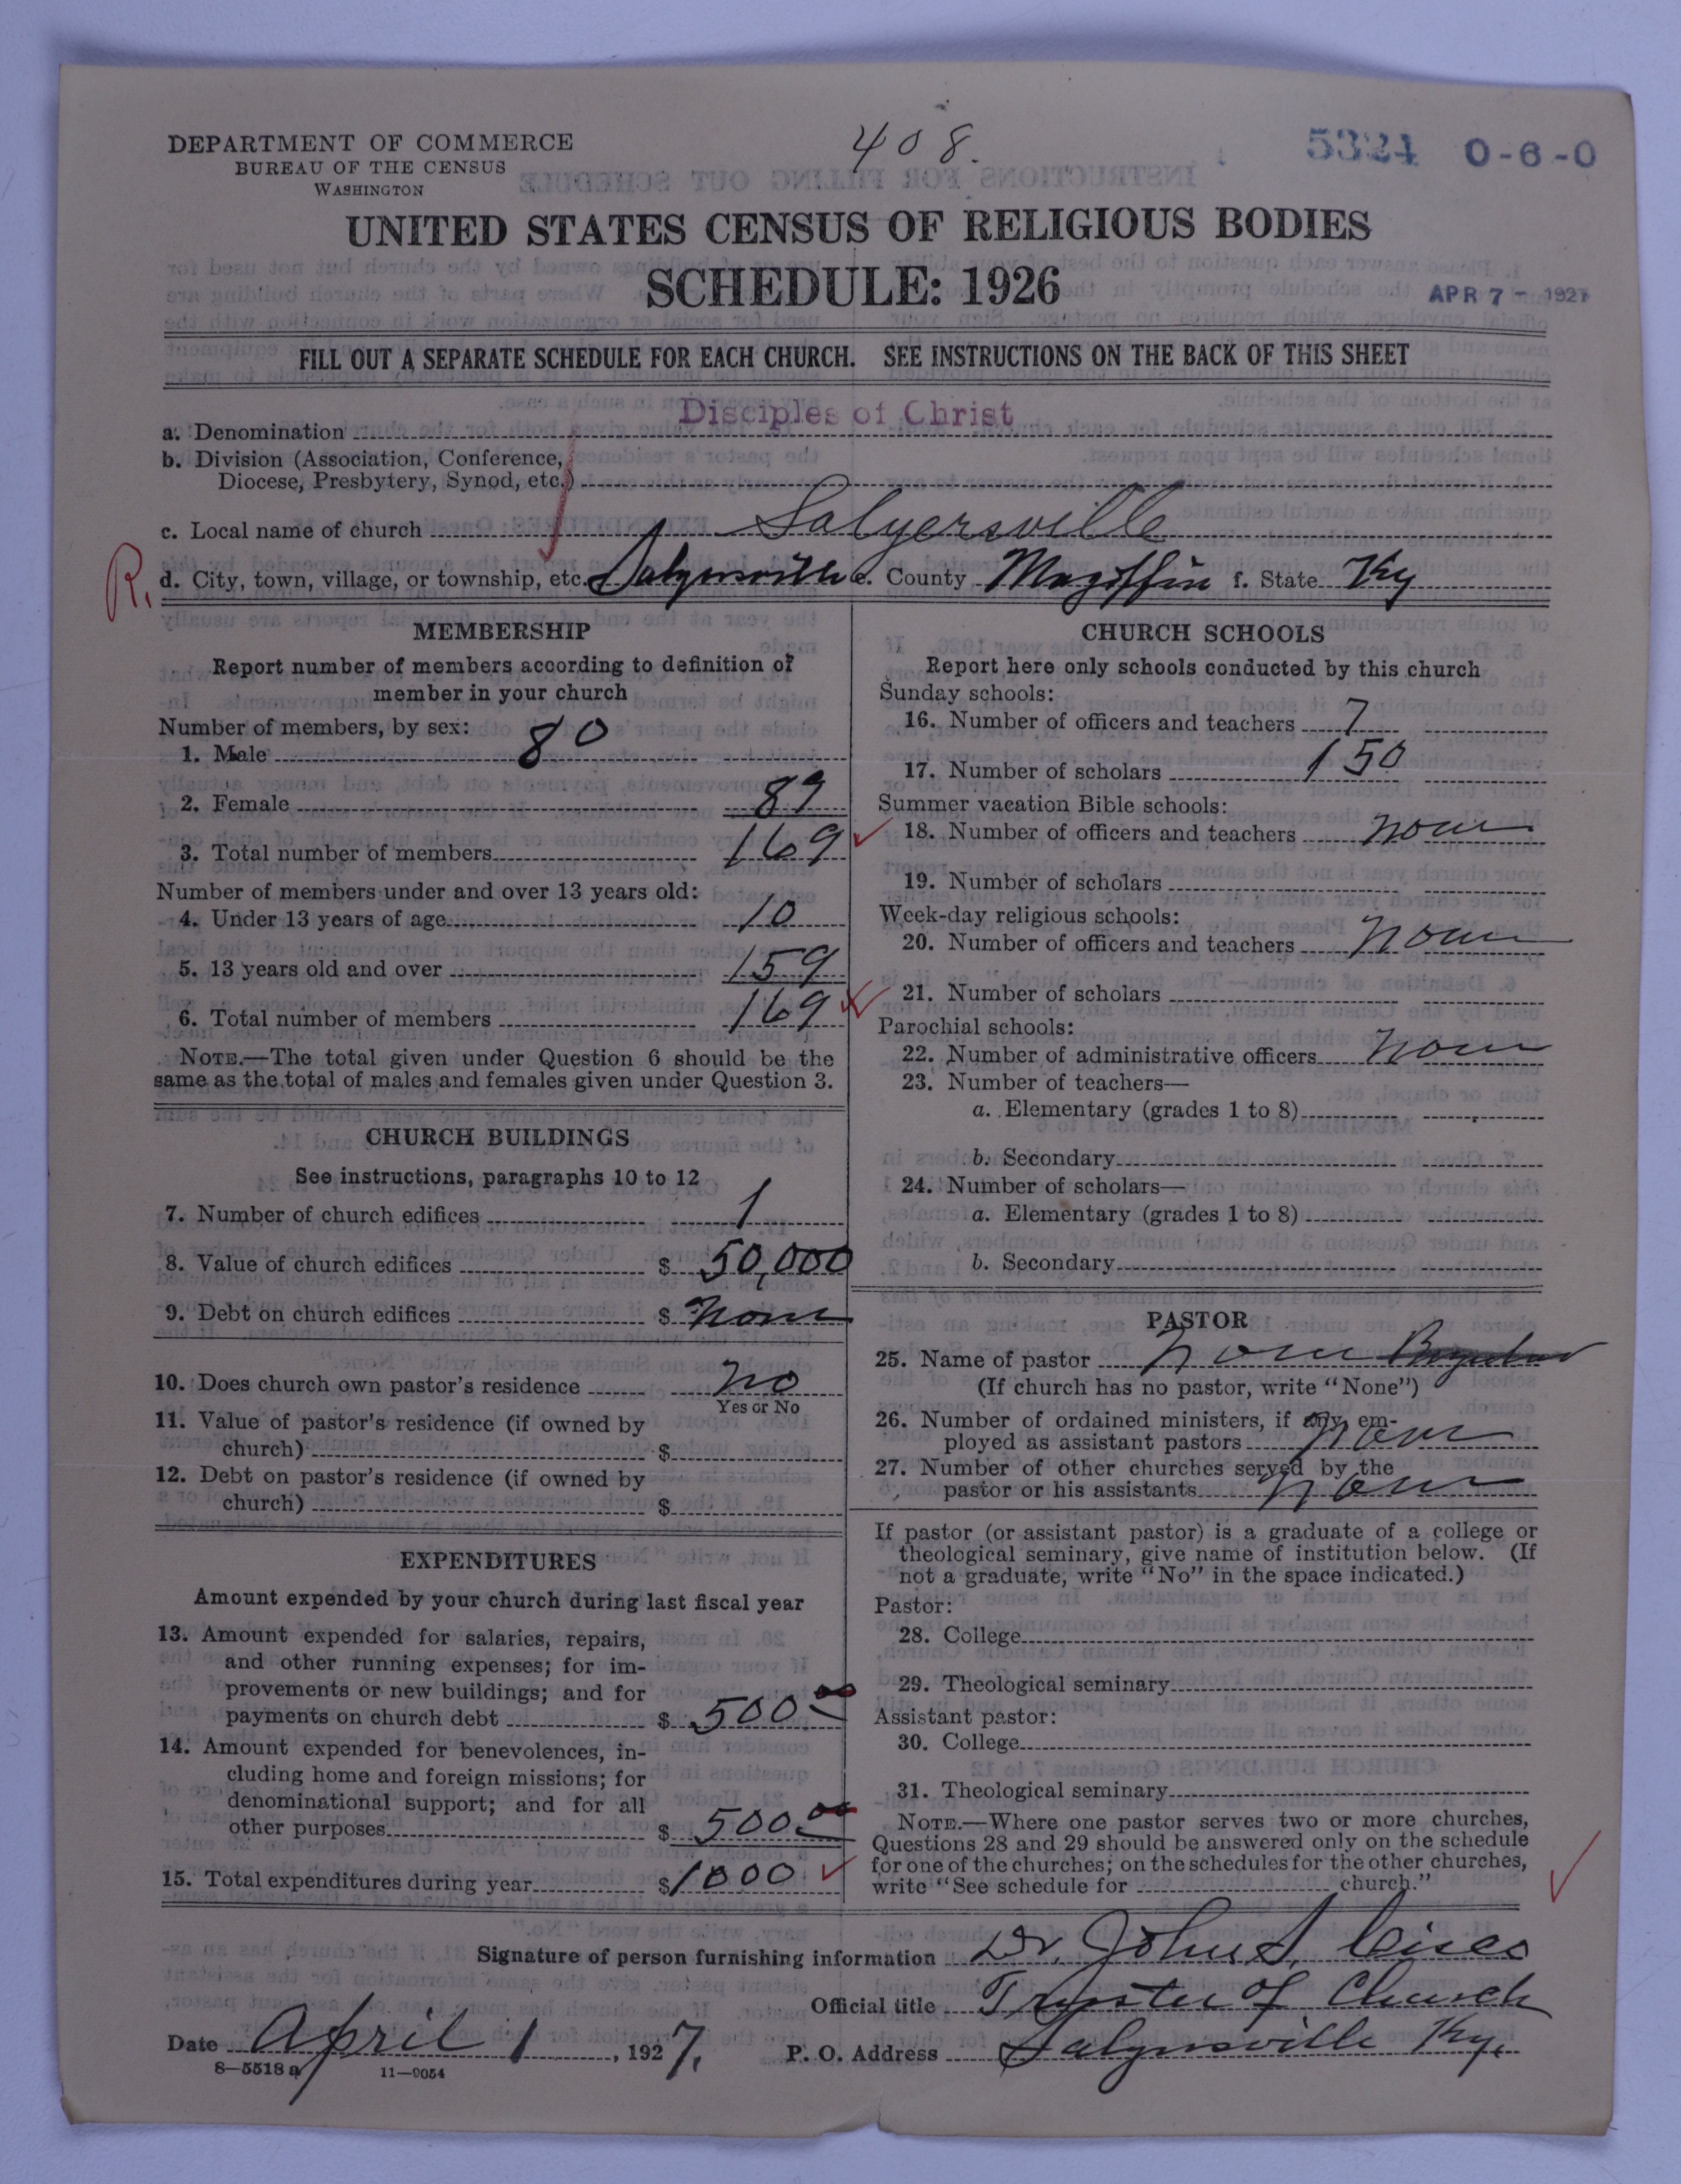 DEPARTMENT OF COMMERCE
BUREAU OF THE CENSUS
WASHINGTON
408.
5324 0-6-0
UNITED STATES CENSUS OF RELIGIOUS BODIES
SCHEDULE: 1926
APR 7 - 1927
FILL OUT A SEPARATE SCHEDULE FOR EACH CHURCH. SEE INSTRUCTIONS ON THE BACK OF THIS SHEET
a. Denomination Disciples of Christ
b. Division (Association, Conference,
Diocese, Presbytery, Synod, etc.)
c. Local name of church Salyersville
R. d. City, town, village, or township, etc. Salyersville e. County Magoffin f. State Ky
MEMBERSHIP
Report number of members according to definition of
member in your church
Number of members, by sex:
1. Male 80
2. Female 89
3. Total number of members 169
Number of members under and over 13 years old:
4. Under 13 years of age 10
5. 13 years old and over 159
6. Total number of members 169
NOTE.—The total given under Question 6 should be the
same as the total of males and females given under Question 3.
CHURCH BUILDINGS
See instructions, paragraphs 10 to 12
7. Number of church edifices 1
8. Value of church edifices $ 50,000
9. Debt on church edifices $ None
10. Does church own pastor's residence no
Yes or No
11. Value of pastor's residence (if owned by
church) $
12. Debt on pastor's residence (if owned by
church) $
EXPENDITURES
Amount expended by your church during last fiscal year
13. Amount expended for salaries, repairs,
and other running expenses; for im-
provements or new buildings; and for
payments on church debt $ 500.00
14. Amount expended for benevolences, in-
cluding home and foreign missions; for
denominational support; and for all
other purposes $ 500.00
15. Total expenditures during year $ 1000
CHURCH SCHOOLS
Report here only schools conducted by this church
Sunday schools:
16. Number of officers and teachers 7
17. Number of scholars 150
Summer vacation Bible schools:
18. Number of officers and teachers None
19. Number of scholars
Week-day religious schools:
20. Number of officers and teachers None
21. Number of scholars
Parochial schools:
22. Number of administrative officers None
23. Number of teachers—
a. Elementary (grades 1 to 8)
b. Secondary
24. Number of scholars—
a. Elementary (grades 1 to 8)
b. Secondary
PASTOR
25. Name of pastor None
(If church has no pastor, write "None")
26. Number of ordained ministers, if any, em-
ployed as assistant pastors None
27. Number of other churches served by the
pastor or his assistants None
If pastor (or assistant pastor) is a graduate of a college or
theological seminary, give name of institution below. (If
not a graduate, write "No" in the space indicated.)
Pastor:
28. College
29. Theological seminary
Assistant pastor:
30. College
31. Theological seminary
NOTE.—Where one pastor serves two or more churches,
Questions 28 and 29 should be answered only on the schedule
for one of the churches; on the schedules for the other churches,
write "See schedule for church."
Signature of person furnishing information Dr. John
Official title Trustee of Church
Date April 1, 1927.
P. O. Address Salyersville Ky.
8—5518 a 11—9054